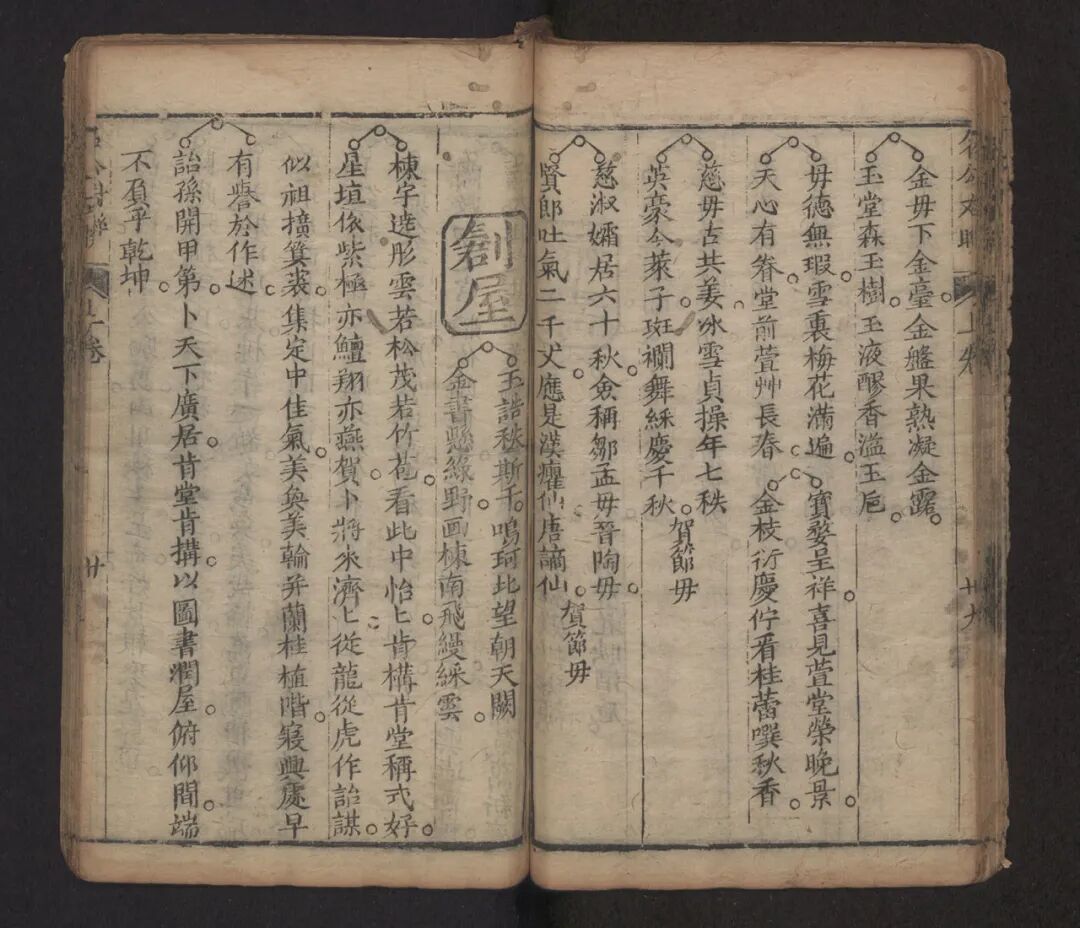 金毋下金臺金盤果熟凝金露
玉堂森玉樹玉液醪香溢玉巵
毋德無瑕雪裏梅花滿遍
天心有眷堂前萱艸長春
寶婺呈祥喜見萱堂榮晚景
金枝衍慶佇看桂蕾噀秋香
慈毋古共姜冰雪貞操年七秩
英豪今萊子斑斕舞綵慶千秋
賀節毋
慈淑孀居六十秋僉稱鄒孟毋晉陶毋
賢郎吐氣二千丈應是漢癯仙唐謫仙
賀節毋
上卷
廿九
剏屋
玉誥秩斯干鳴珂北望朝天闕
金書懸綠野画棟南飛縵綵雲
棟宇造彤雲若松茂若竹苞看此中怡〻肯構肯堂稱式好
星垣依紫極亦鱣翔亦燕賀卜將來濟〻從龍從虎作詒謀
似祖擴箕裘集定中佳氣美奐美輪并蘭桂植階寢興處早
有譽於作述
詒孫開甲第卜天下廣居肯堂肯搆以圖書潤屋俯仰間端
不負乎乾坤
卷
廿